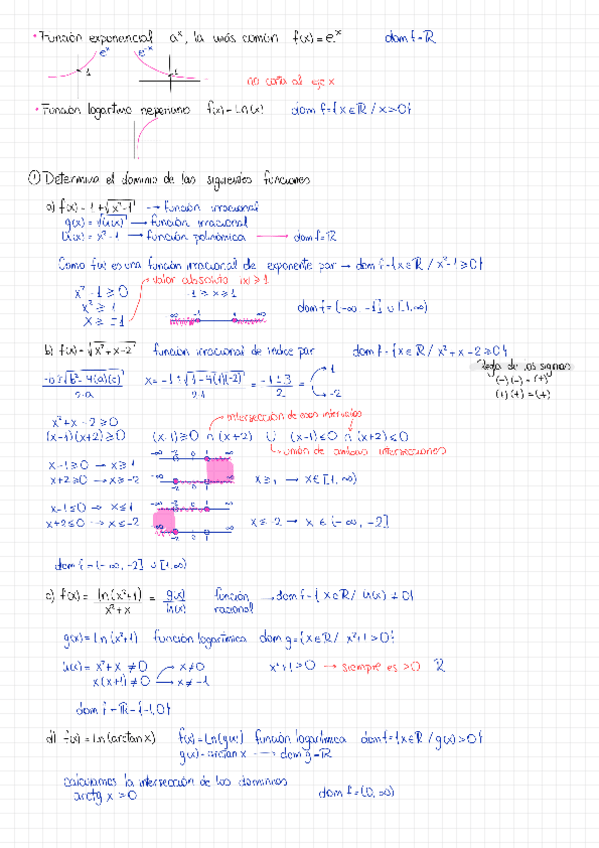 • Función exponencial aˣ, la más común f(x) = eˣ dom f = ℝ
eˣ e⁻ˣ
1 1
no corta al eje x
• Función logaritmo neperiano f(x) = Ln(x) dom f = {x ∈ ℝ / x > 0}
① Determina el dominio de las siguientes funciones
a) f(x) = 1 + √(x²-1) → función irracional
g(x) = √(u(x)) → función irracional
u(x) = x² - 1 → función polinómica → dom f = ℝ
Como f(x) es una función irracional de exponente par → dom f = {x ∈ ℝ / x² - 1 ≥ 0}
valor absoluto |x| ≥ 1
x² - 1 ≥ 0 1 ≥ x ≥ 1
x² ≥ 1
x ≥ ±1 -∞ -1 1 ∞ dom f = (-∞ -1] ∪ [1, ∞)
b) f(x) = √(x² + x - 2) función irracional de índice par dom f = {x ∈ ℝ / x² + x - 2 ≥ 0}
Regla de los signos
(-)(-) = (+)
(+)(+) = (+)
-b ± √(b² - 4(a)(c)) / 2·a x = -1 ± √(1 - 4(1)(-2)) / 2·1 = -1 ± 3 / 2 = 1
-2
intersección de esos intervalos
x² + x - 2 ≥ 0
(x-1)(x+2) ≥ 0 (x-1) ≥ 0 ∩ (x+2) ∪ (x-1) ≤ 0 ∩ (x+2) ≤ 0
unión de ambas intersecciones
x - 1 ≥ 0 → x ≥ 1 -∞ -2 0 1 ∞
x + 2 ≥ 0 → x ≥ -2 -∞ -2 0 1 ∞ x ≥ 1 → x ∈ [1, ∞)
x - 1 ≤ 0 → x ≤ 1 -∞ -2 0 1 ∞
x + 2 ≤ 0 → x ≤ -2 -∞ -2 0 1 ∞ x ≤ -2 → x ∈ (-∞, -2]
dom f = (-∞, -2] ∪ [1, ∞)
c) f(x) = ln(x²+1) / x²+x = g(x) / u(x) función racional → dom f = {x ∈ ℝ / u(x) ≠ 0}
g(x) = Ln(x²+1) función logarítmica dom g = {x ∈ ℝ / x² + 1 > 0}
u(x) = x² + x ≠ 0 x ≠ 0 x² + 1 > 0 → siempre es > 0 ℝ
x(x+1) ≠ 0 x ≠ -1
dom f = ℝ - {-1, 0}
d) f(x) = Ln(arctan x) f(x) = Ln(g(x)) función logarítmica dom f = {x ∈ ℝ / g(x) > 0}
g(x) = arctan x → dom g = ℝ
Calculamos la intersección de los dominios
arctg x > 0 dom f = (0, ∞)